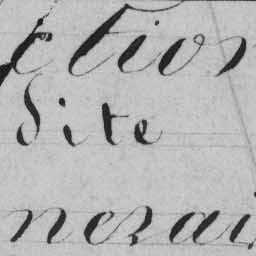 ction
dite
nerai